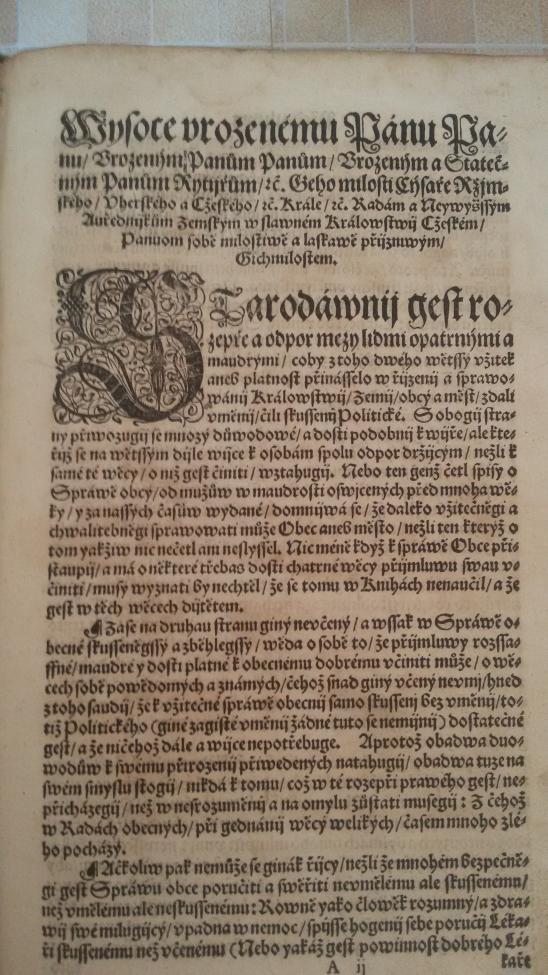 Wysoce vrozenému Pánu Pa-
nu/ Vrozeným Panům Panům/ Vrozeným a Stateč-
ným Panům Rytijřům/ ⁊č. Geho milosti Cýsaře Ržjm-
ského/ Vherského a Cžeského/ ⁊č. Krále/ ⁊č. Radám a Neywyšším
Auředlnijkům Zemským w slawném Králowstwij Cžeském/
Panuom sobě milostiwě a laskawě přijzniwým/
Gichmilostem.
STarodáwnij gest ro-
zepře a odpor mezy lidmi opatrnými a
maudrými/ coby z toho dwého wětssý vžitek
aneb platnost přinásselo w řijzenij a sprawo-
wánij Králowstwij/ Zemij/ obcý a měst/ zdali
vměnij/ čili skussenij Politické. S obogij stra-
ny přiwozugij se mnozý důwodowé/ a dosti podobnij k wijře/ ale kte-
řijž se na wětssým dijle wijce k osobám spolu odpor držijcým/ nežli k
samé té wěcy/ o niž gest činiti/ wztahugij. Nebo ten genž četl spisy o
Spráwě obcý/ od mužůw w maudrosti oswijcených před mnoha wě-
ky/ y za nassých časůw wydané/ domnijwá se/ že daleko vžitečněgi a
chwalitebněgi sprawowati může Obec aneb město/ nežli ten kterýž o
tom yakžiw nic nečetl ani neslyssel. Nic méně když k spráwě Obce při-
staupij/ a má o některé třebas dosti chatrné wěcy přijmluwu swau v-
činiti/ musý wyznati by nechtěl/ že se tomu w Knihách nenaučil/ a že
gest w těch wěcech dijtětem.
¶ Zase na druhau stranu giný nevčený/ a wssak w Spráwě o-
becné skusseněgssý a zběhlegssý/ wěda o sobě to/ že přijmluwy rozssa-
ffné/ maudré y dosti platné k obecnému dobrému včiniti může/ o wě-
cech sobě powědomých a známých/ čehož snad giný včený nevmij/ hned
z toho saudij/ že k vžitečné spráwě obecnij samo skussenij bez vměnij/ to-
tiž Politického (giné zagisté vměnij žádné tuto se nemijnij) dostatečné
gest/ a že ničehož dále a wijce nepotřebuge. Aprotož obadwa duo-
wodůw k swému přirozenij přiwedených natahugij/ obadwa tuze na
swém smyslu stogij/ nikdá k tomu/ což w té rozepři prawého gest/ ne-
přicházegij/ než w nesrozuměnij a na omylu zůstati musegij: Z čehož
w Radách obecných/ při gednánij wěcý welikých/ časem mnoho zlé-
ho pocházý.
¶ Ačkoliw pak nemůže se ginák řijcy/ nežli že mnohém bezpečně-
gi gest Spráwu obce poručiti a swěřiti nevmělému ale skussenému/
než vmělému ale neskussenému: Rowně yako člowěk rozumný/ a zdra-
wij swé milugijcý/ vpadna w nemoc/ spijsse hogenij sebe poručij Léka-
ři skussenému než včenému (Nebo yakáž gest powinnost dobrého Lé-
A ij
kaře